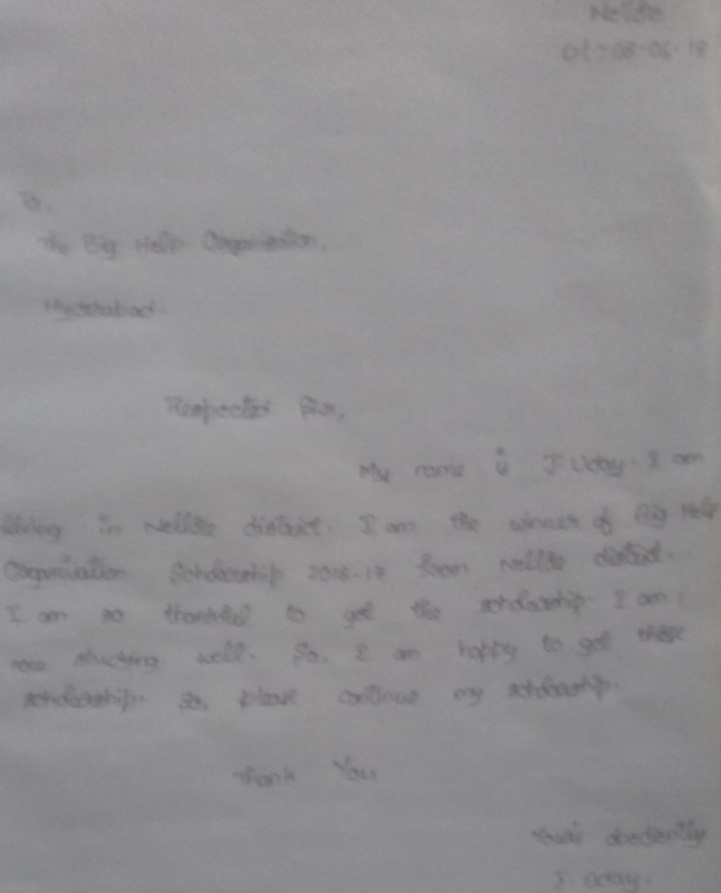 Nellore
Dt:-08-06-18
To,
The Big Help Organisation,
Hyderabad.
Respected Sir,
My name is J. Uday. I am
living in Nellore district. I am the winner of Big Help
Organisation Scholarship 2016-17 from Nellore district.
I am so thankful to get the scholarship. I am
now studying well. So, I am happy to get these
scholarship. So, please continue my scholarship.
Thank You
Your's obediently
J. Uday.